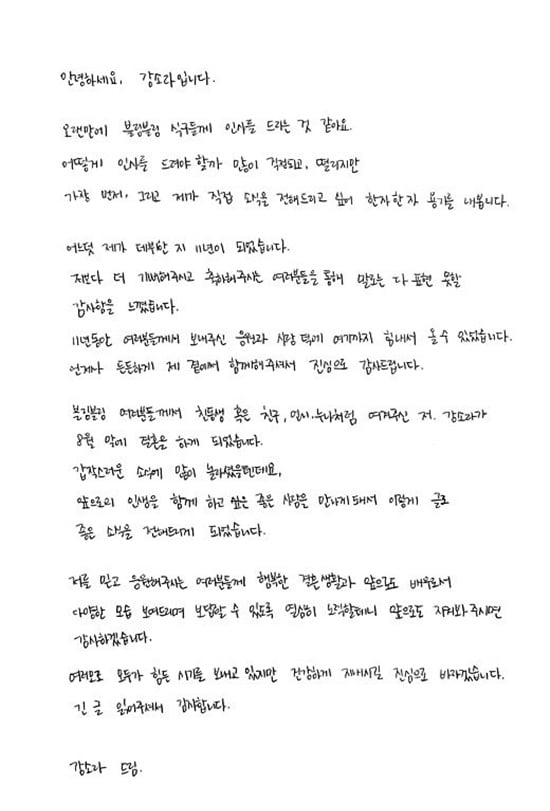 안녕하세요, 강소라입니다.
오랜만에 블링블링 식구들께 인사를 드리는 것 같아요.
어떻게 인사를 드려야 할까 많이 걱정되고, 떨리지만
가장 먼저, 그리고 제가 직접 소식을 전해드리고 싶어 한자한자 용기를 내봅니다.
어느덧 제가 데뷔한 지 11년이 되었습니다.
저보다 더 기념해주시고 축하해주시는 여러분들을 통해 말로는 다 표현 못할
감사함을 느꼈습니다.
11년동안 여러분들께서 보내주신 응원과 사랑 덕에 여기까지 힘내서 올 수 있었습니다.
언제나 든든하게 제 곁에서 함께해주셔서 진심으로 감사드립니다.
블링블링 여러분들께서 친동생 혹은 친구, 언니.누나처럼 여겨주신 저. 강소라가
8월 말에 결혼을 하게 되었습니다.
갑작스러운 소식에 많이 놀라셨을텐데요,
앞으로의 인생을 함께 하고 싶은 좋은 사람을 만나게 돼서 이렇게 글로
좋은 소식을 전해드리게 되었습니다.
저를 믿고 응원해주시는 여러분들께 행복한 결혼생활과 앞으로도 배우로서
다양한 모습 보여드리며 보답할 수 있도록 열심히 노력할테니 앞으로도 지켜봐 주시면
감사하겠습니다.
여러모로 모두가 힘든 시기를 보내고 있지만 건강하게 지내시길 진심으로 바라겠습니다.
긴 글 읽어주셔서 감사합니다.
강소라 드림.